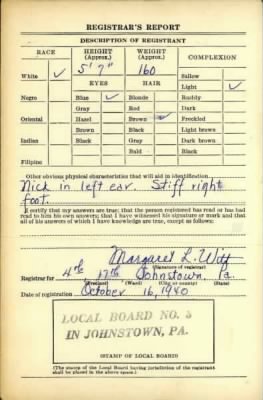 REGISTRAR'S REPORT
DESCRIPTION OF REGISTRANT
RACE HEIGHT (Approx.) WEIGHT (Approx.) COMPLEXION
White ✓ 5' 7" 160 Sallow
EYES HAIR Light ✓
Negro Blue ✓ Blonde Ruddy
Gray Red Dark
Oriental Hazel Brown ✓ Freckled
Brown Black Light brown
Indian Black Gray Dark brown
Bald Black
Filipino
Other obvious physical characteristics that will aid in identification
Nick in left ear. Stiff right
foot.
I certify that my answers are true; that the person registered has read or has had
read to him his own answers; that I have witnessed his signature or mark and that
all of his answers of which I have knowledge are true, except as follows:
Margaret L. Witt
(Signature of registrar)
Registrar for 4th 17th Johnstown, Pa
(Precinct) (Ward) (City or county) (State)
Date of registration October 16, 1940
LOCAL BOARD NO. 3
IN JOHNSTOWN, PA.
(STAMP OF LOCAL BOARD)
(The stamp of the Local Board having jurisdiction of the registrant
shall be placed in the above space.)